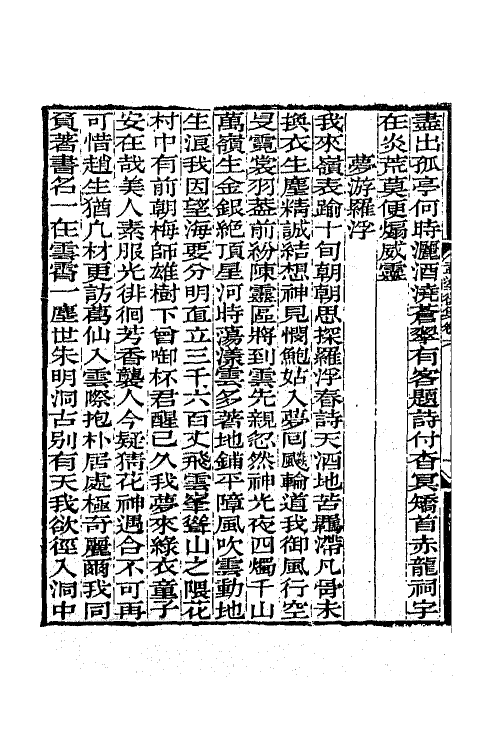 盡出孤亭何時灑酒澆蒼翠有客題詩付杳冥矯首赤龍祠宇
在炎荒莫便煽威靈
夢游羅浮
我來嶺表踰十旬朝朝思探羅浮春詩天酒地苦羈滯凡骨未
換衣生塵精誠結想神見憫鮑姑入夢回飈輪道我御風行空
旻霓裳羽葢前紛陳靈區將到雲先親忽然神光夜四燭千山
萬嶺生金銀絶頂星河時蕩漾雲多著地鋪平障風吹雲動地
生浪我因望海要分明直立三千六百丈飛雲峯聳山之隈花
村中有前朝梅師雄樹下曾啣杯君醒已久我夢來綠衣童子
安在哉美人素服光徘徊芳香襲人今疑猜花神遇合不可再
可惜趙生猶凡材更訪葛仙入雲際抱朴居處極奇麗爾我同
負著書名一在雲霄一塵世朱明洞古别有天我欲徑入洞中